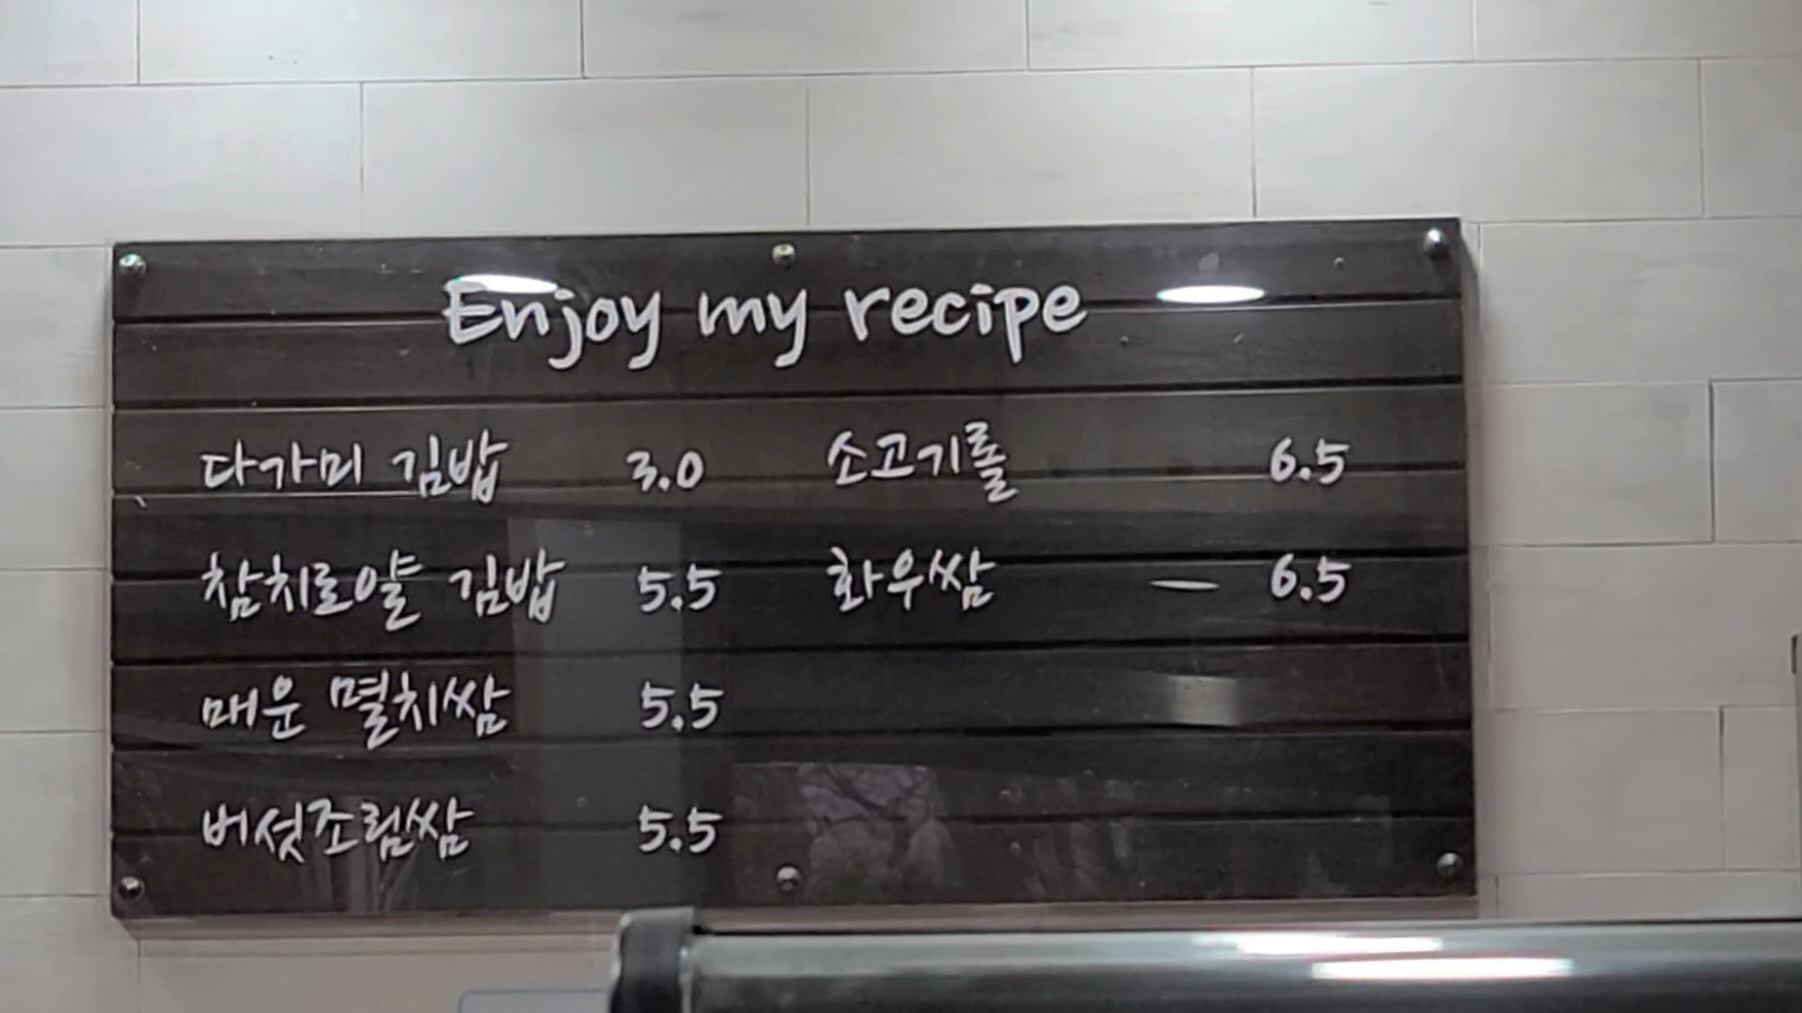 Enjoy my recipe
다가미 김밥 3.0 소고기롤 6.5
참치로얄 김밥 5.5 화우쌈 6.5
매운 멸치쌈 5.5
버섯조림쌈 5.5